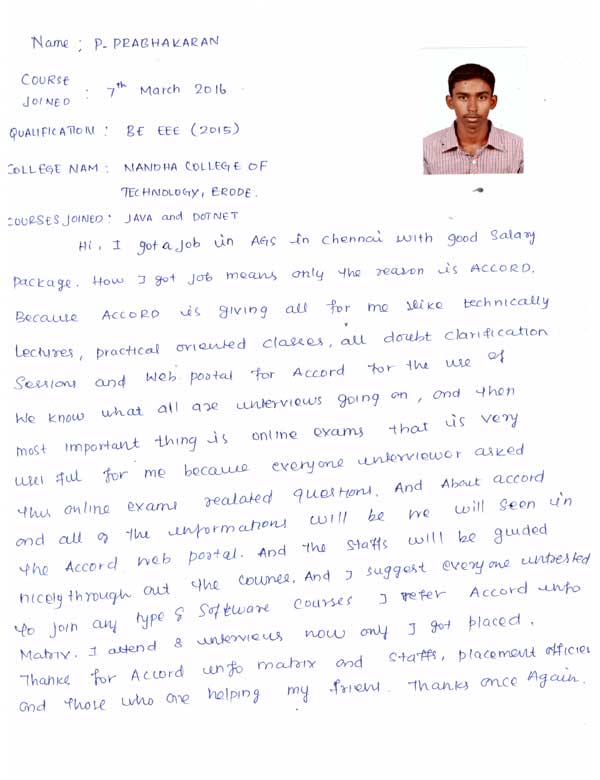 Name : P. PRABHAKARAN
COURSE
JOINED : 7th March 2016
QUALIFICATION : BE EEE (2015)
COLLEGE NAM : NANDHA COLLEGE OF
TECHNOLOGY, ERODE.
COURSES JOINED : JAVA and DOTNET
Hi, I got a Job in AGS in Chennai with good Salary
package. How I got job means only the reason is ACCORD.
Because ACCORD is giving all for me like technically
Lectures, practical oriented classes, all doubt clarification
Sessions and Web portal for Accord for the use of
We know what all are interviews going on, and then
most important thing is online exams that is very
useful for me because everyone interviewer asked
this online exams realated questions. And About accord
and all of the informations will be we will seen in
the Accord web portal. And the staffs will be guided
nicely through out the counee. And I suggest everyone untrested
to join any type of Software courses I refer Accord info
Matrix. I attend 8 interviews now only I got placed.
Thanke for Accord info matrix and staffs, placement officier
and those who are helping my friend. Thanks once Again.